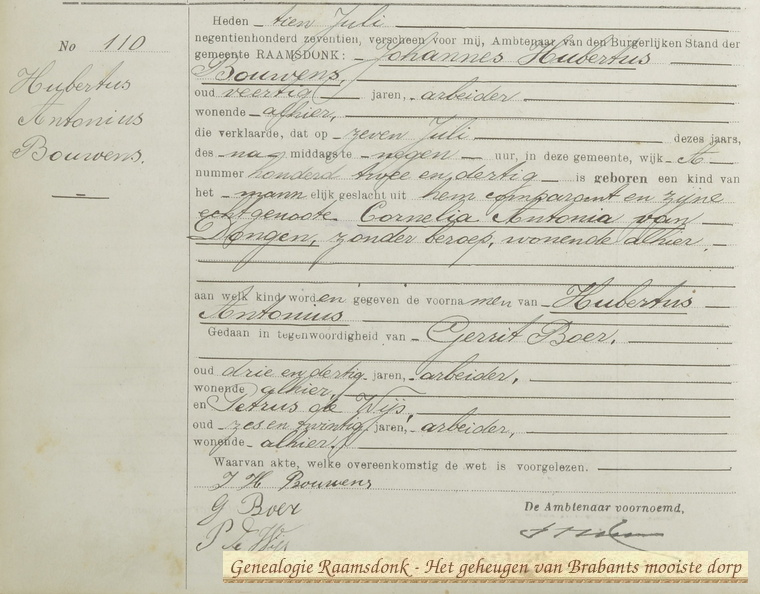 No 110
Hubertus
Antonius
Bouwens.
Heden tien Juli
negentienhonderd zeventien, verscheen voor mij, Ambtenaar van den Burgerlijken Stand der
gemeente RAAMSDONK: Johannes Hubertus
Bouwens,
oud veertig jaren, arbeider
wonende alhier,
die verklaarde, dat op zeven Juli dezes jaars,
des na middags te negen uur, in deze gemeente, wijk A
nummer honderd twee en dertig is geboren een kind van
het mann elijk geslacht uit hem comparant en zijne
echtgenoote Cornelia Antonia van
Dongen, zonder beroep, wonende alhier.
aan welk kind worden gegeven de voornamen van Hubertus
Antonius
Gedaan in tegenwoordigheid van Gerrit Boer,
oud drie en dertig jaren, arbeider,
wonende alhier,
en Petrus de Wijs,
oud zes en twintig jaren, arbeider,
wonende alhier.
Waarvan akte, welke overeenkomstig de wet is voorgelezen.
J H Bouwens
G Boer
P de Wijs
De Ambtenaar voornoemd,
Genealogie Raamsdonk - Het geheugen van Brabants mooiste dorp